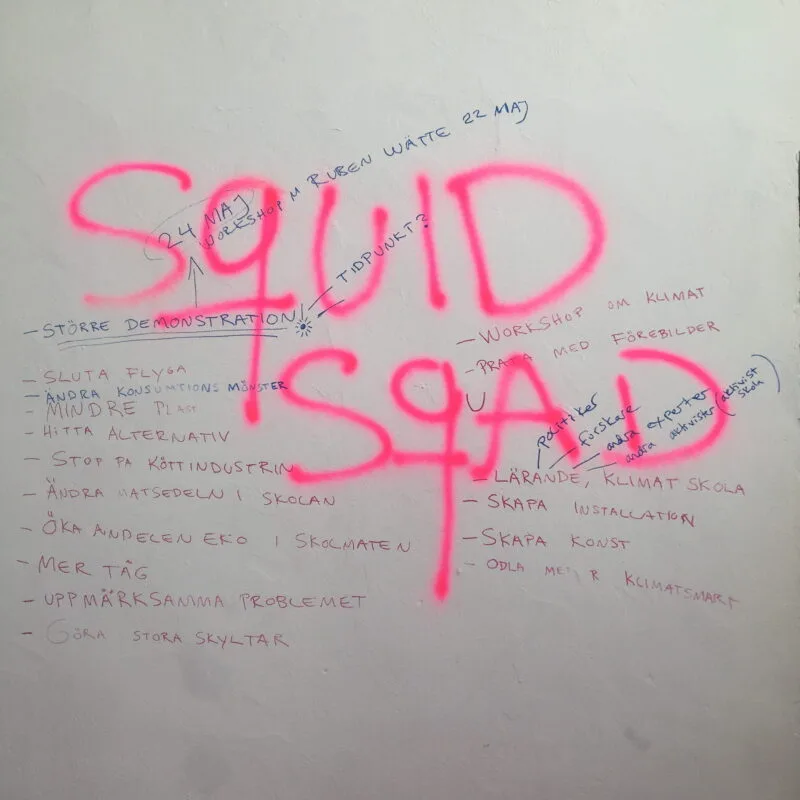 SQUID
SQAD
24 MAJ
WORKSHOP M RUBEN WÄTTE 22 MAJ
TIDPUNKT?
- STÖRRE DEMONSTRATION!
- SLUTA FLYGA
- ÄNDRA KONSUMTIONS MÖNSTER
- MINDRE PLAST
- HITTA ALTERNATIV
- STOP PÅ KÖTTINDUSTRIN
- ÄNDRA MATSEDELN I SKOLAN
- ÖKA ANDELEN EKO I SKOLMATEN
- MER TÅG
- UPPMÄRKSAMMA PROBLEMET
- GÖRA STORA SKYLTAR
- WORKSHOP OM KLIMAT
- PRATA MED FÖREBILDER
politiker
forskare
andra experter
andra aktivister (aktivist skola)
- LÄRANDE, KLIMAT SKOLA
- SKAPA INSTALLATION
- SKAPA KONST
- ODLA KLIMATSMART